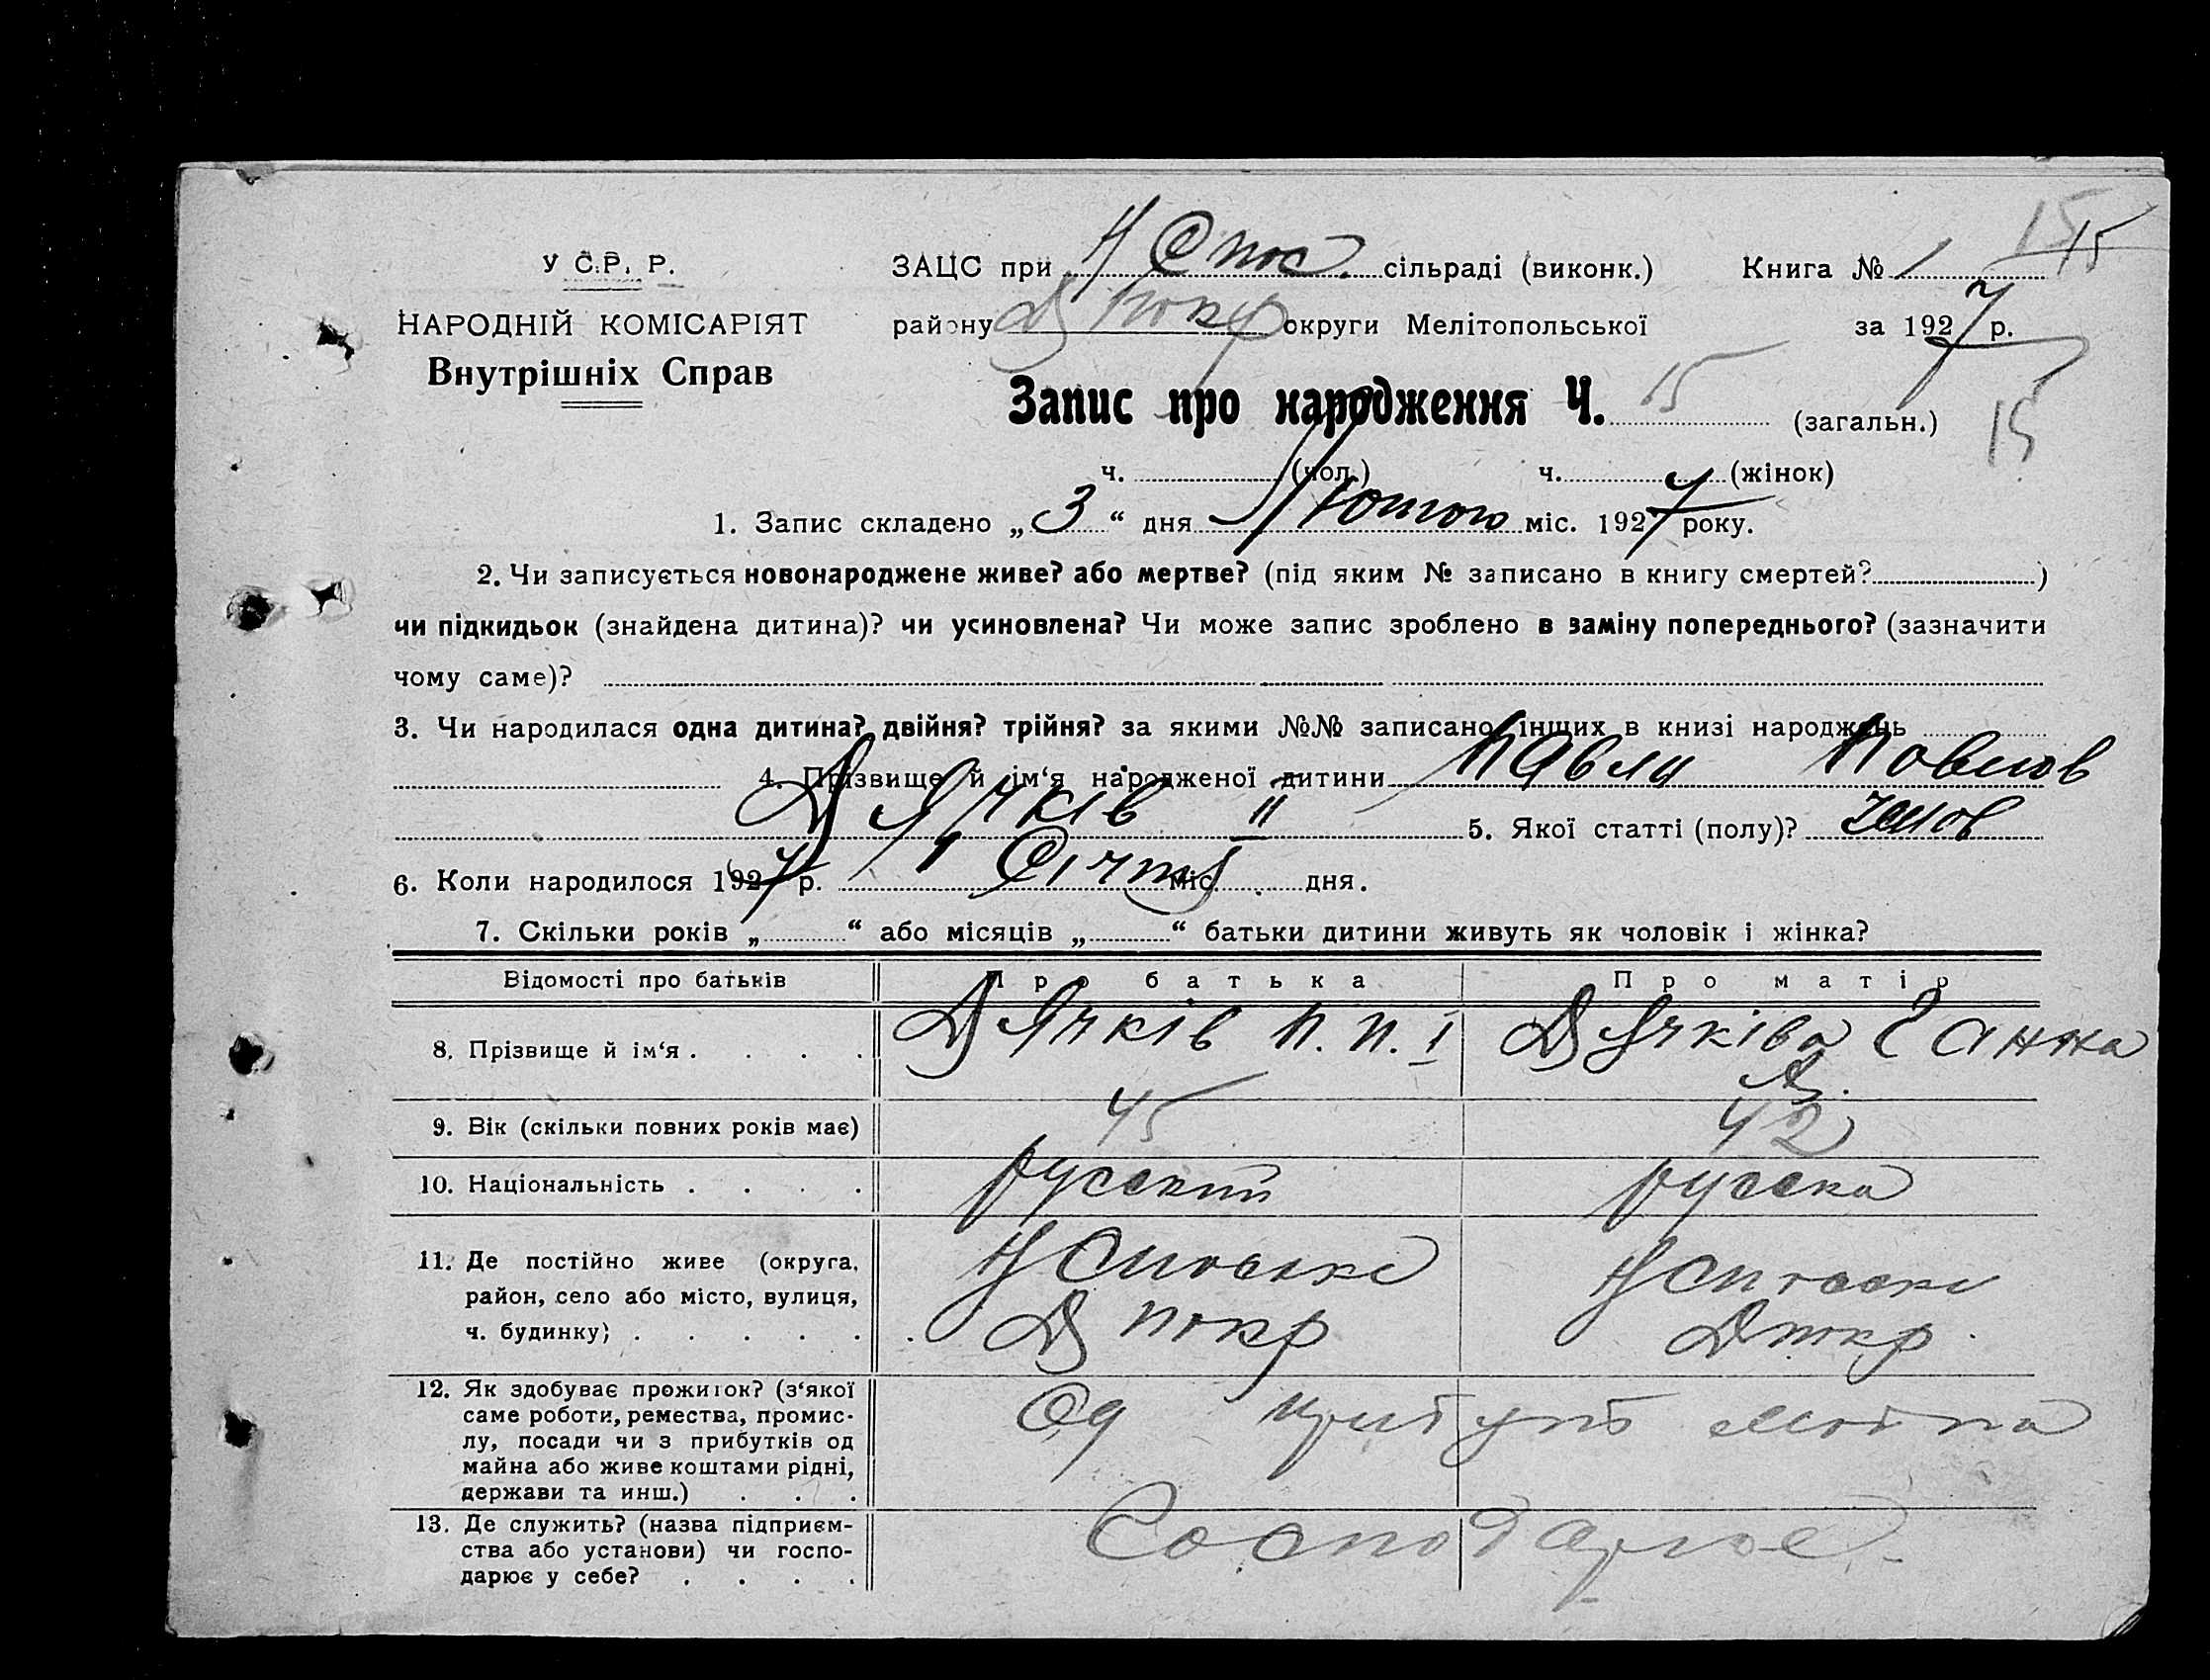 15 15
У С.Р.Р. ЗАЦС при Н Спас. сільраді (виконк.) Книга № 1
НАРОДНІЙ КОМІСАРІЯТ району Д Покр округи Мелітопольської за 1927 р.
Внутрішніх Справ
Запис про народження Ч. 15 (загальн.) 15
ч. (чол.) ч. (жінок)
1. Запис складено „3“ дня Лютого міс. 1927 року.
2. Чи записується новонароджене живе? або мертве? (під яким № записано в книгу смертей? )
чи підкидьок (знайдена дитина)? чи усиновлена? Чи може запис зроблено в заміну попереднього? (зазначити
чому саме)?
3. Чи народилася одна дитина? двійня? трійня? за якими №№ записано інших в книзі народжень
4. Прізвище й ім‘я народженої дитини Павло Павлов
Дячків II 5. Якої статті (полу)? чолов
6. Коли народилося 1927 р. 1 Січня міс. дня.
7. Скільки років „ “ або місяців „ “ батьки дитини живуть як чоловік і жінка?
Відомості про батьків Про батька Про матір
8. Прізвище й ім‘я . . . . Дячків П. П. I Дячківа Ганна
А.
9. Вік (скільки повних років має) 45 42
10. Національність . . . . русский русска
11. Де постійно живе (округа, Н Спаське Н Спаске
район, село або місто, вулиця,
ч. будинку) . . . . . Д Покр Д покр.
12. Як здобуває прожиток? (з‘якої
саме роботи, ремества, промис-
лу, посади чи з прибутків од Од
майна або живе коштами рідні,
держави та инш.) . . .
13. Де служить? (назва підприєм-
ства або установи) чи госпо- Господарює.
дарює у себе? . . . .